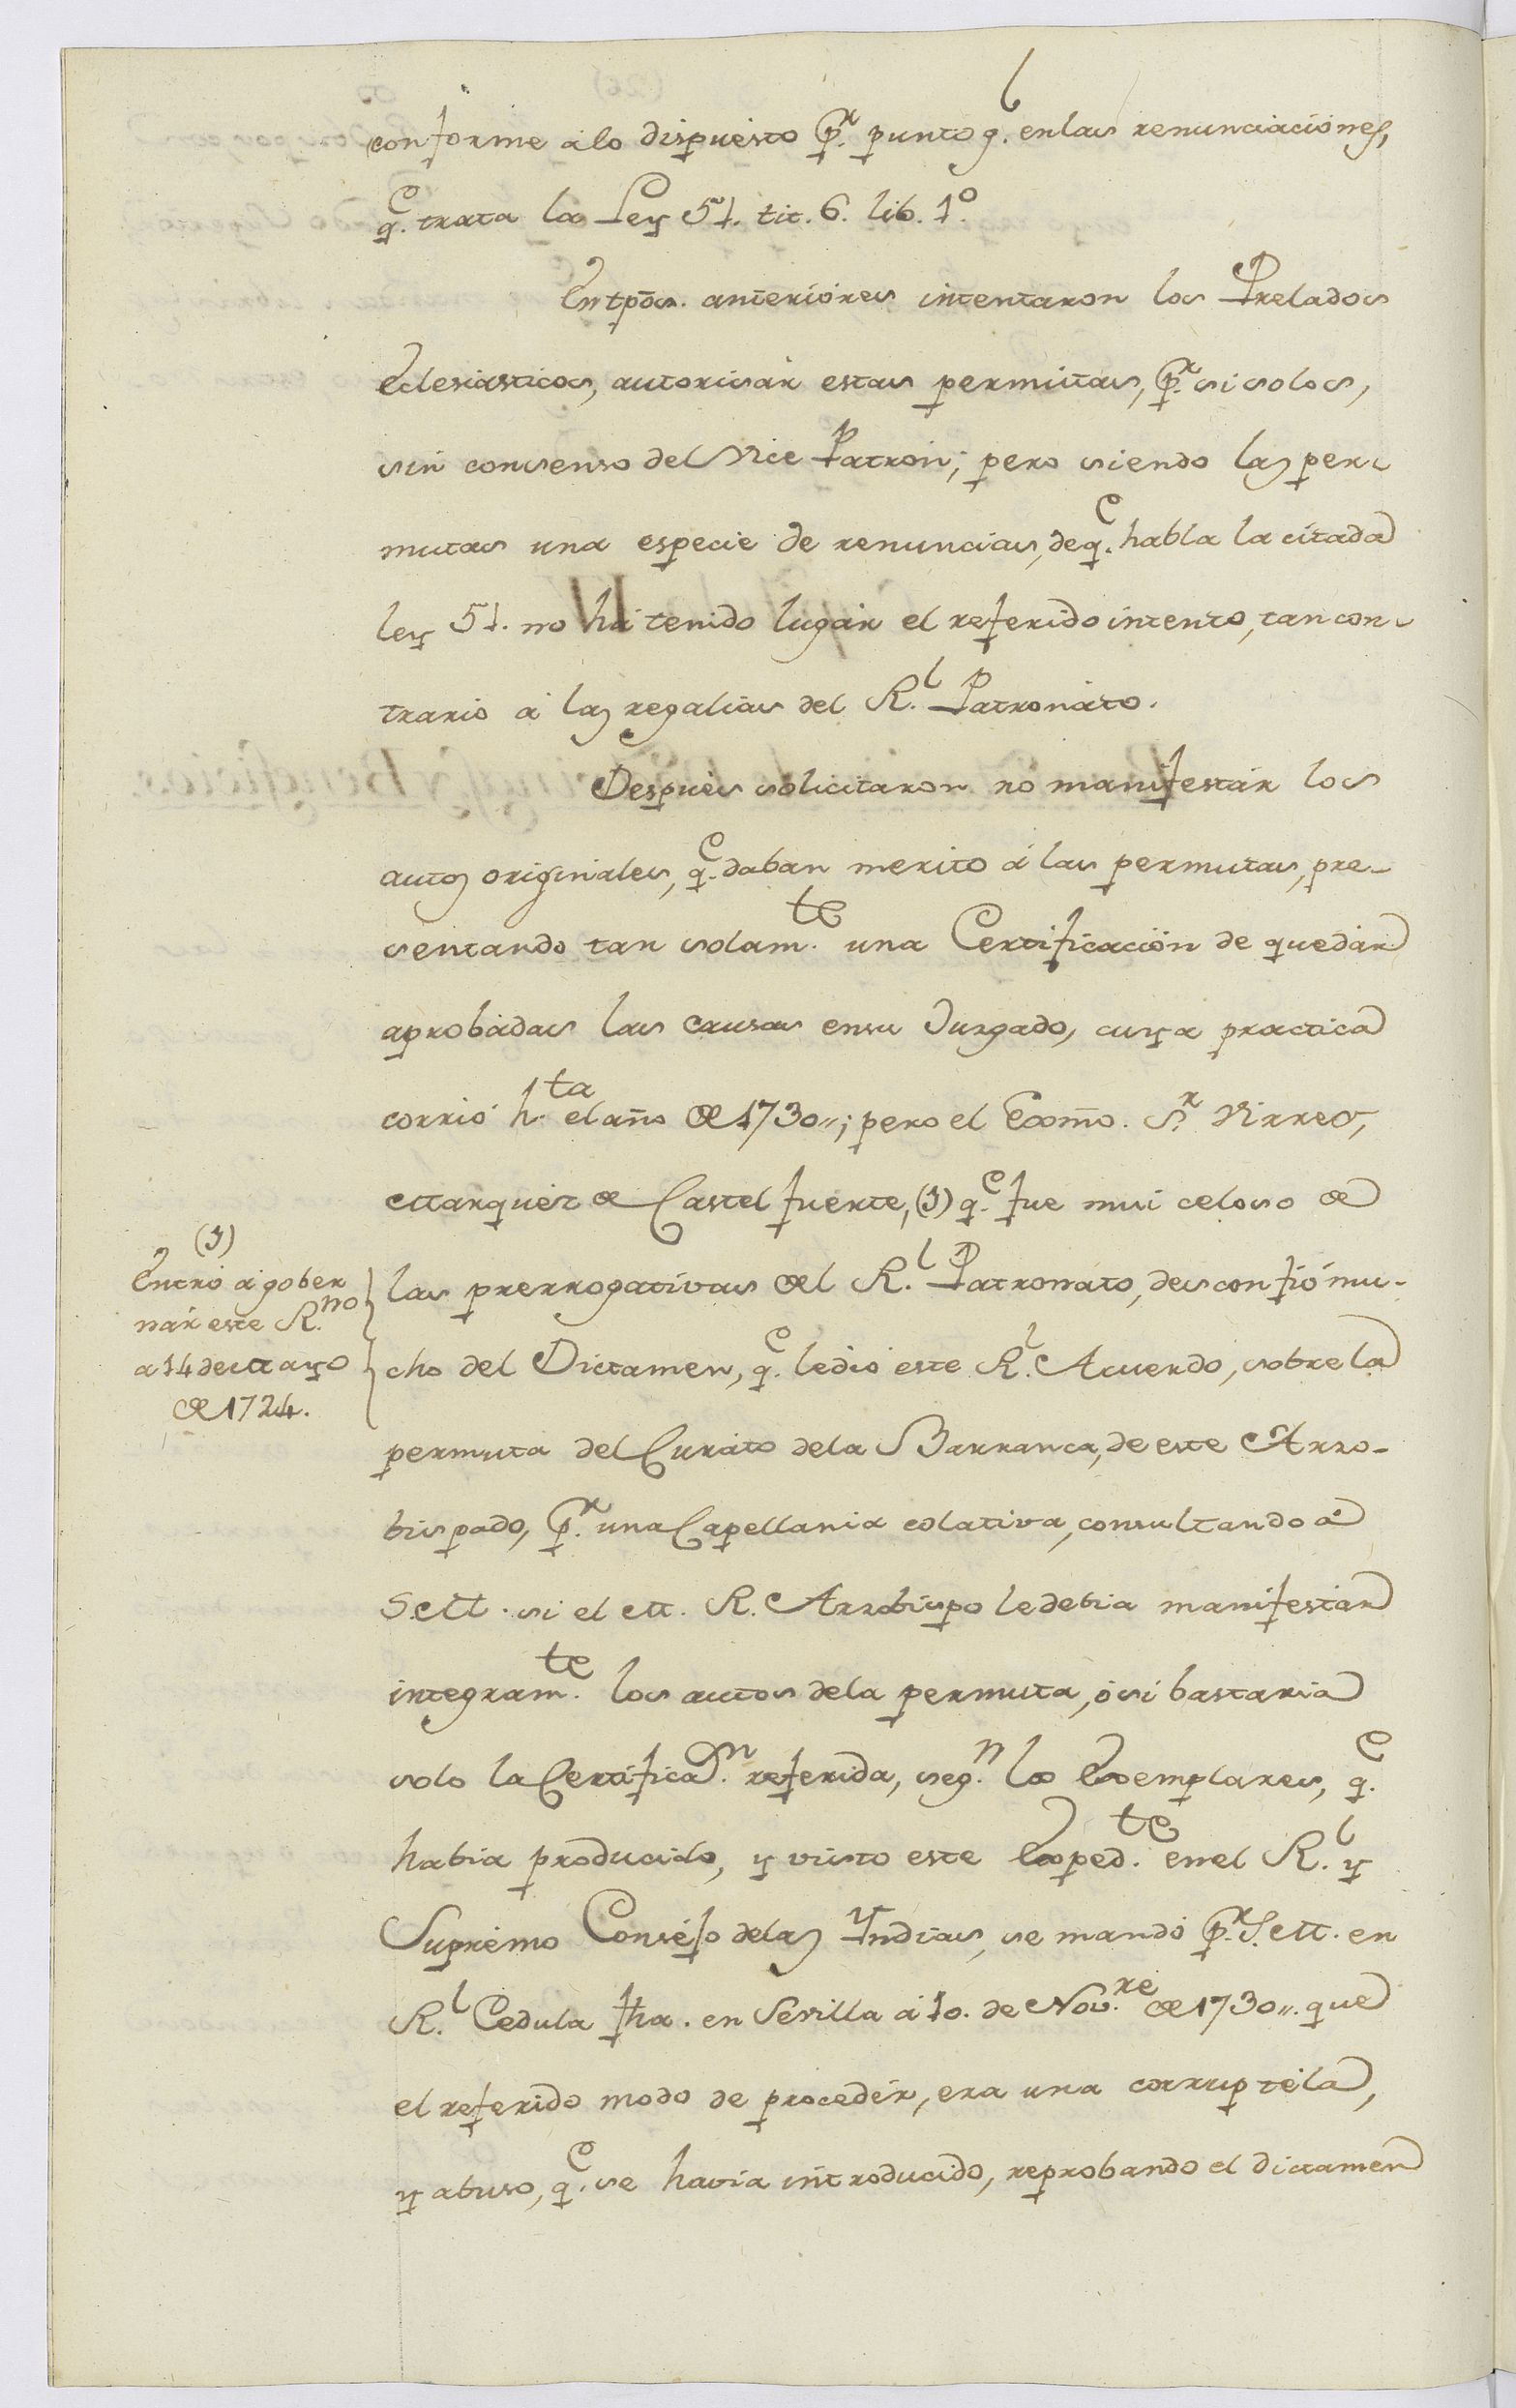 conforme á lo dispuesto p.r punto g.l en las renunciaciones,
q.e trata la Ley 51. tit. 6. lib. 1.o
En tpōs. anteriores intentaron los Prelados
Eclesiasticos, autorisár estas permutas, p.r si solos,
sin consenso del Vice Patron; pero siendo las per-
mutas una especie de renuncias, de q.e habla la citada
ley 51. no há tenido lugár el referido intento, tan con-
trario á las regalias del R.l Patronáto.
Despues solicitaron no manifestár los
autos originales, q.e daban merito á las permutas, pre-
sentando tan solam.te una Certificación de quedár
aprobadas las causas en su Jusgado, cuya practica
corrió h.ta el año de 1730,,; pero el Exm̄o. S.r Virrey,
Marquéz de Castelfuerte, (3) q.e fue mui celoso de
las prerrogativas del R.l Patronato, desconfió mu-
cho del Dictamen, q.e le dió este R.l Acuerdo, sobre la
permuta del Curáto de la Barranca, de este Arzo-
bispado, p.r una Capellania colativa, consultando á
S. M. si el M. R. Arzobispo le debia manifestár
integram.te los autos de la permuta, ó si bastaria
solo la Certificac.on referida, seg.n los Exemplares, q.e
habia producido, y visto este Exped.te en el R.l y
Supremo Conséjo de las Yndias, se mandó p.r S. M. en
R.l Cedula fha. en Sevilla á 10. de Nov.re de 1730,,. que
el referido modo de procedér, era una corruptéla,
y abuso, q.e se havia introducido, reprobando el dictamen
(3)
Entró á gober
nár este R.no
a 14 de Mayo
de 1724.